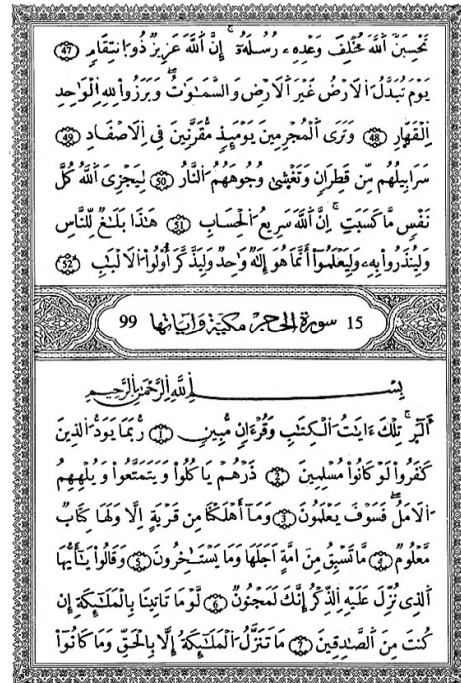 تَحْسِبَنَّ اَ۬للَّهَ مُخْلِفَ وَعْدِهِۦ رُسُلَهُۥٓۖ إِنَّ اَ۬للَّهَ عَزِيزٞ ذُو اُ۪نتِقَامٖ 47
يَوْمَ تُبَدَّلُ اُ۬لَارْضُ غَيْرَ اَ۬لَارْضِ وَالسَّمَٰوَٰتُۖ وَبَرَزُواْ لِلهِ اِ۬لْوَٰحِدِ
اِ۬لْقَهّ۪ارِ 48 وَتَرَى اَ۬لْمُجْرِمِينَ يَوْمَئِذٖ مُّقَرَّنِينَ فِے اِ۬لَاصْفَادِ 49
سَرَابِيلُهُم مِّن قَطِرَانٖ وَتَغْش۪ىٰ وُجُوهَهُمُ اُ۬لنَّارُ 50 لِيَجْزِيَ اَ۬للَّهُ كُلَّ
نَفْسٖ مَّا كَسَبَتِۖ إِنَّ اَ۬للَّهَ سَرِيعُ اُ۬لْحِسَابِ 51 هَٰذَا بَلَٰغٞ لِّلنَّاسِ
وَلِيُنذَرُواْ بِهِۦ وَلِيَعْلَمُوٓاْ أَنَّمَا هُوَ إِلَٰهٞ وَٰحِدٞ وَلِيَذَّكَّرَ أُوْلُواْ اُ۬لَالْبَٰبِ 52
15 سورة الحجر مكية وآياتها 99
بِسْمِ اِ۬للَّهِ اِ۬لرَّحْمَٰنِ اِ۬لرَّحِيمِ
أَلَٓرۖ تِلْكَ ءَايَٰتُ اُ۬لْكِتَٰبِ وَقُرْءَانٖ مُّبِينٖ 1 رُّبَمَا يَوَدُّ اُ۬لذِينَ
كَفَرُواْ لَوْ كَانُواْ مُسْلِمِينَ 2 ذَرْهُمْ يَاكُلُواْ وَيَتَمَتَّعُواْ وَيُلْهِهِمُ
اُ۬لَامَلُۖ فَسَوْفَ يَعْلَمُونَ 3 وَمَآ أَهْلَكْنَا مِن قَرْيَةٍ إِلَّا وَلَهَا كِتَابٞ
مَّعْلُومٞ 4 مَّا تَسْبِقُ مِنُ ا۟مَّةٍ اَجَلَهَا وَمَا يَسْتَٰخِرُونَ 5 وَقَالُواْ يَٰٓأَيُّهَا
اَ۬لذِے نُزِّلَ عَلَيْهِ اِ۬لذِّكْرُ إِنَّكَ لَمَجْنُونٞ 6 لَّوْ مَا تَاتِينَا بِالْمَلَٰٓئِكَةِ إِن
كُنتَ مِنَ اَ۬لصَّٰدِقِينَ 7 مَا تَنَزَّلُ اُ۬لْمَلَٰٓئِكَةُ إِلَّا بِالْحَقِّ وَمَا كَانُوٓاْ